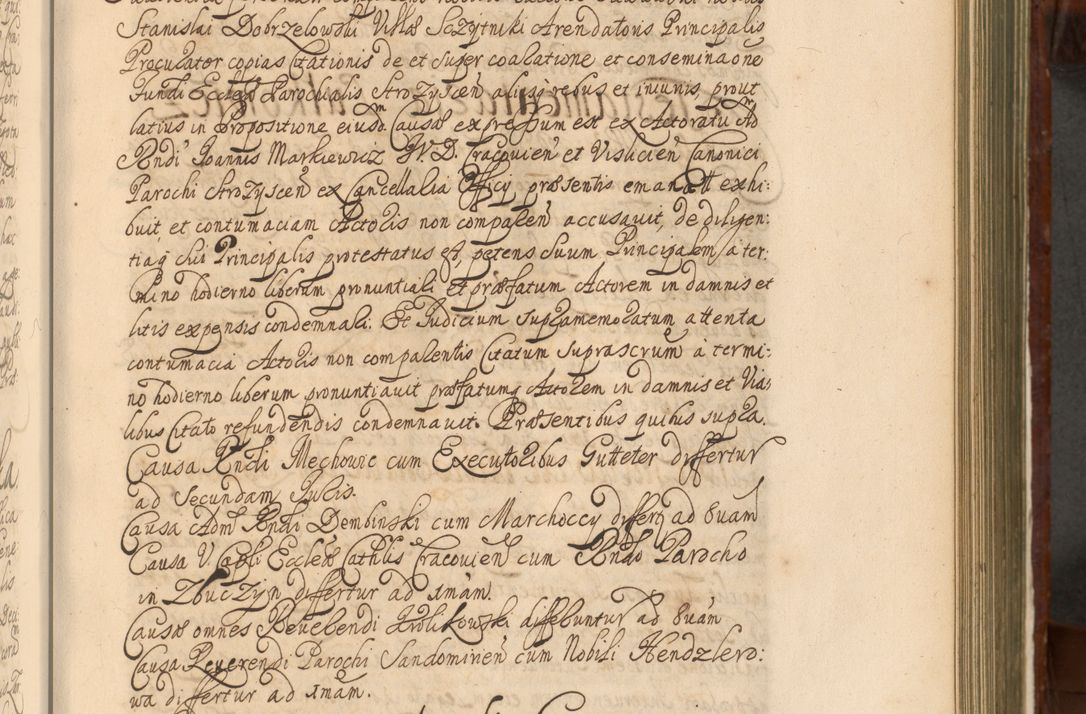 Stanislai Dobrzelowski Villæ Sczytniki Arendatoris Principalis
Procurator copias Citationis de et super coaratione et conseminaōne
Fundi Ecclæ Parochialis Strozyscen̄ aliisq rebus et iniuriis prout
latius in Propositione eiusdm Causæ expressum est ex Actoratu Adm̄
Rndi Joannis Markiewicz J.V.D. Cracovien̄ et Vislicien̄ Canonici
Parochi Strozyscen̄ ex Cancellaria Officij præsentis emanatt exhi:
buit et contumaciam Actoris non comparen̄ accusavit, de diligen:
tiaq sui Principalis protestatus est, petens suum Principalem a ter:
mino hodierno liberum pronuntiari et præfatum Actorem in damnis et
litis expensis condemnari. Et Judicium supramemoratum attenta
contumacia Actoris non comparentis Citatum suprascrum à termi:
no hodierno liberum pronuntiavit præfatumq Actorem in damnis et Via:
libus Citato refundendis condemnavit. Præsentibus quibus supra.
Causa Rndi Mechovie cum Executoribus Gutteter differtur
ad secundam Juris.
Causa Adm̄ Rndi Dembinski cum Marchoccy differ ad 8vam
Causa V. Capli Ecclæ Cathlis Cracovien̄ cum Rndo Parocho
in Zbuczyn differtur ad 1mam.
Causæ omnes Reverendi Krolikowski differuntur ad 8vam
Causa Reverendi Parochi Sandomirien̄ cum Nobili Hendzlero:
wa differtur ad 1mam.